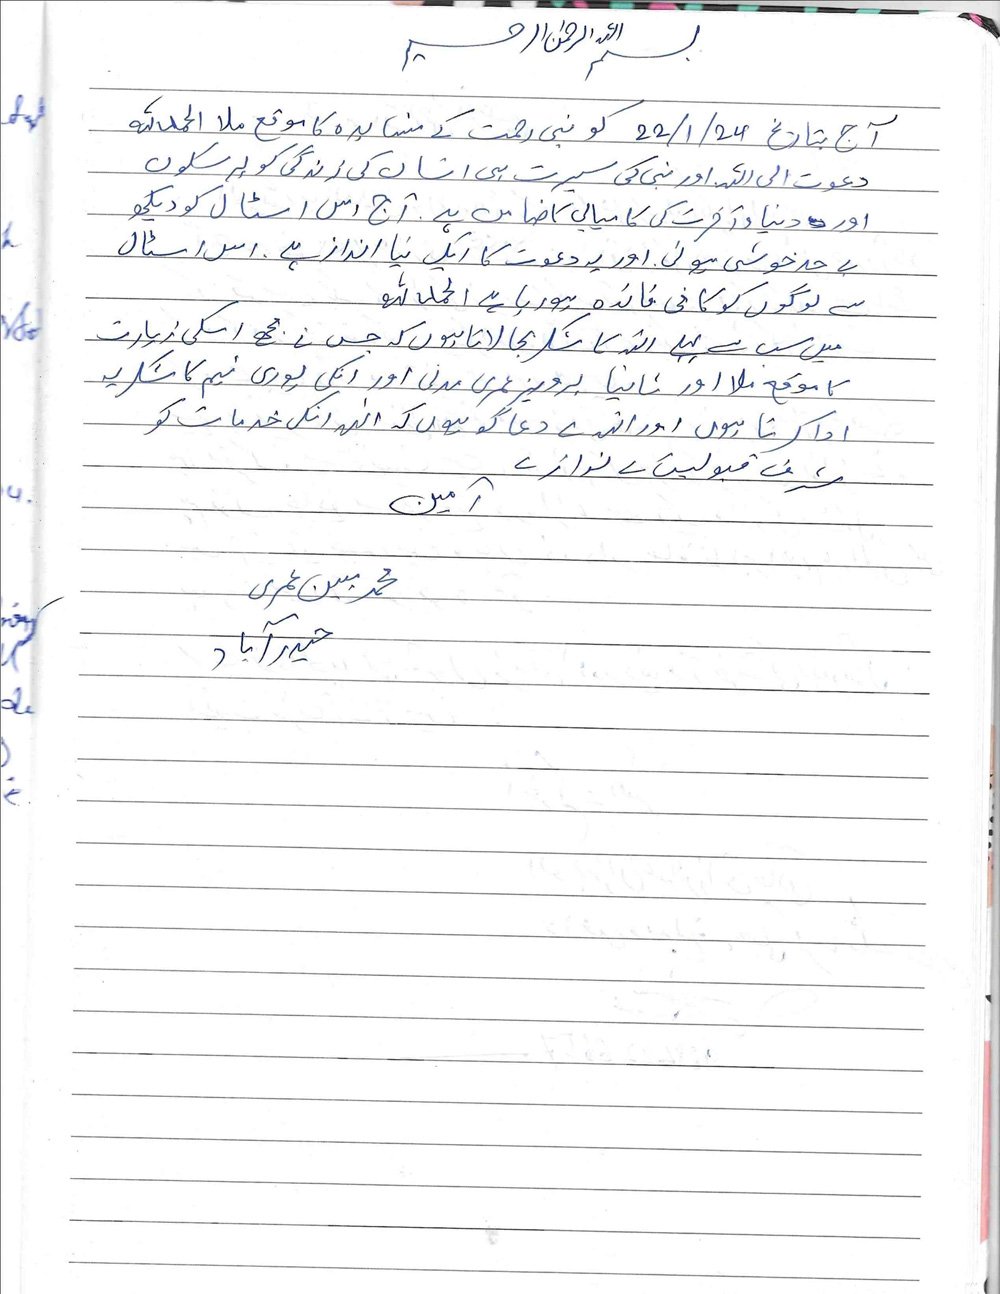 بسم اللہ الرحمٰن الرحیم
آج بتاریخ 22/1/24 کو نبی رحمت کے مشاہدہ کا موقع ملا الحمد للہ
دعوت الی اللہ اور نبی کی سیرت ہی انسان کی زندگی کو پر سکون
اور دنیا و آخرت کی کامیابی کا ضامن ہے۔ آج اس اسٹال کو دیکھ
بے حد خوشی ہوئی۔ اور یہ دعوت کا ایک نیا انداز ہے۔ اس اسٹال
سے لوگوں کو کافی فائدہ ہو رہا ہے الحمد للہ
میں سب سے پہلے اللہ کا شکر بجا لاتا ہوں کہ جس نے مجھے اسکی زیارت
کا موقع ملا اور ثانیا پرویز عمری مدنی اور انکی پوری ٹیم کا شکریہ
ادا کرتا ہوں اور اللہ سے دعا گو ہوں کہ اللہ انکی خدمات کو
شرف قبولیت سے نوازے
آمین
محمد مبین عمری
حیدرآباد